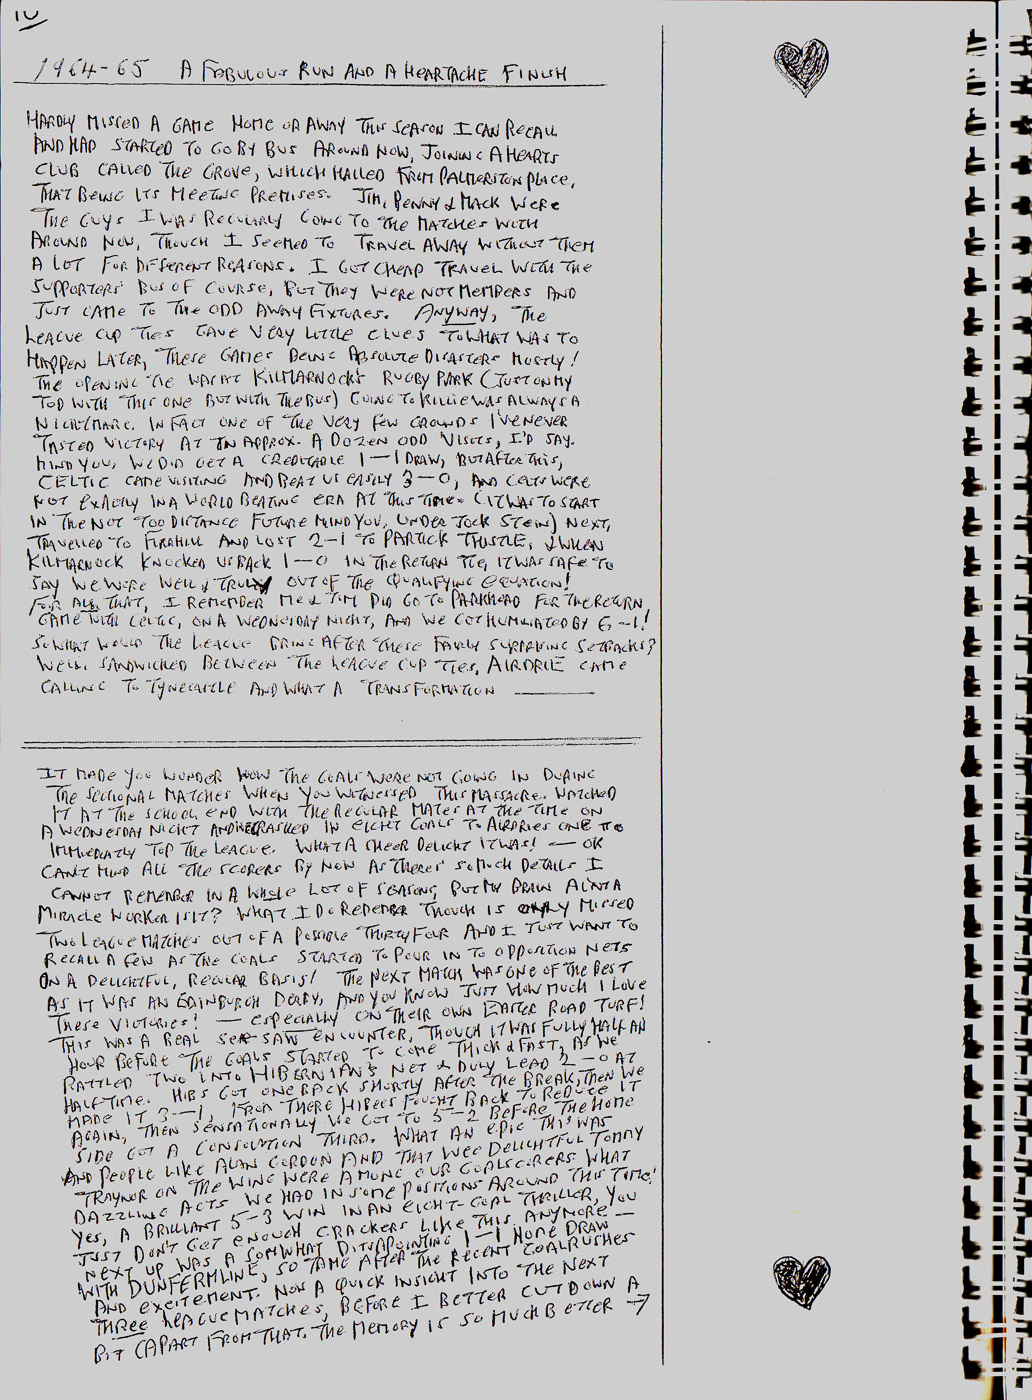 10
1964-65 A FABULOUS RUN AND A HEARTACHE FINISH
HARDLY MISSED A GAME HOME OR AWAY THIS SEASON I CAN RECALL
AND HAD STARTED TO GO BY BUS AROUND NOW, JOINING A HEARTS
CLUB CALLED THE GROVE, WHICH HAILED FROM PALMERSTON PLACE,
THAT BEING ITS MEETING PREMISES. JIM, BENNY & MACK WERE
THE GUYS I WAS REGULARLY GOING TO THE MATCHES WITH
AROUND NOW, THOUGH I SEEMED TO TRAVEL AWAY WITHOUT THEM
A LOT FOR DIFFERENT REASONS. I GOT CHEAP TRAVEL WITH THE
SUPPORTERS' BUS OF COURSE, BUT THEY WERE NOT MEMBERS AND
JUST CAME TO THE ODD AWAY FIXTURES. ANYWAY, THE
LEAGUE CUP TIES GAVE VERY LITTLE CLUES TO WHAT WAS TO
HAPPEN LATER, THESE GAMES BEING ABSOLUTE DISASTERS MOSTLY!
THE OPENING TIE WAS AT KILMARNOCK'S RUGBY PARK (JUST ON MY
TOD WITH THIS ONE BUT WITH THE BUS) GOING TO KILLIE WAS ALWAYS A
NIGHTMARE. IN FACT ONE OF THE VERY FEW GROUNDS I'VE NEVER
TASTED VICTORY AT IN APPROX. A DOZEN ODD VISITS, I'D SAY.
MIND YOU, WE DID GET A CREDITABLE 1-1 DRAW, BUT AFTER THIS,
CELTIC CAME VISITING AND BEAT US EASILY 3-0, AND CELTS WERE
NOT EXACTLY IN A WORLD BEATING ERA AT THIS TIME. (IT WAS TO START
IN THE NOT TOO DISTANCE FUTURE MIND YOU, UNDER JOCK STEIN) NEXT,
TRAVELLED TO FIRHILL AND LOST 2-1 TO PARTICK THISTLE, & WHEN
KILMARNOCK KNOCKED US BACK 1-0 IN THE RETURN TIE, IT WAS SAFE TO
SAY WE WERE WELL & TRULY OUT OF THE QUALIFYING EQUATION!
FOR ALL THAT, I REMEMBER ME & JIM DID GO TO PARKHEAD FOR THE RETURN
GAME WITH CELTIC, ON A WEDNESDAY NIGHT, AND WE GOT HUMILIATED BY 6-1!
SO WHAT WOULD THE LEAGUE BRING AFTER THESE FAIRLY SURPRISING SETBACKS?
WELL, SANDWICHED BETWEEN THE LEAGUE CUP TIES, AIRDRIE CAME
CALLING TO TYNECASTLE AND WHAT A TRANSFORMATION ———
IT MADE YOU WONDER HOW THE GOALS WERE NOT GOING IN DURING
THE SECTIONAL MATCHES WHEN YOU WITNESSED THIS MASSACRE. WATCHED
IT AT THE SCHOOL END WITH THE REGULAR MATES AT THE TIME ON
A WEDNESDAY NIGHT AND WE CRASHED IN EIGHT GOALS TO AIRDRIES ONE TO
IMMEDIATLY TOP THE LEAGUE. WHAT A SHEER DELIGHT IT WAS! — OK
CAN'T MIND ALL THE SCORERS BY NOW AS THERE'S SO MUCH DETAILS I
CANNOT REMEMBER IN A WHOLE LOT OF SEASONS, BUT MY BRAIN AIN'T A
MIRACLE WORKER IS IT? WHAT I DO REMEMBER THOUGH IS ONLY MISSED
TWO LEAGUE MATCHES OUT OF A POSSIBLE THIRTY FOUR AND I JUST WANT TO
RECALL A FEW AS THE GOALS STARTED TO POUR IN TO OPPOSITION NETS
ON A DELIGHTFUL, REGULAR BASIS! THE NEXT MATCH WAS ONE OF THE BEST
AS IT WAS AN EDINBURGH DERBY, AND YOU KNOW JUST HOW MUCH I LOVE
THESE VICTORIES! — ESPECIALLY ON THEIR OWN EASTER ROAD TURF!
THIS WAS A REAL SEE-SAW ENCOUNTER, THOUGH IT WAS FULLY HALF AN
HOUR BEFORE THE GOALS STARTED TO COME THICK & FAST, AS WE
RATTLED TWO INTO HIBERNIAN'S NET & DULY LEAD 2-0 AT
HALF TIME. HIBS GOT ONE BACK SHORTLY AFTER THE BREAK, THEN WE
MADE IT 3-1, FROM THERE HIBEES FOUGHT BACK TO REDUCE IT
AGAIN, THEN SENSATIONALLY WE GOT TO 5-2 BEFORE THE HOME
SIDE GOT A CONSOLATION THIRD. WHAT AN EPIC THIS WAS
AND PEOPLE LIKE ALAN GORDON AND THAT WEE DELIGHTFUL TOMMY
TRAYNOR ON THE WING WERE AMONG OUR GOALSCORERS WHAT
DAZZLING ACTS WE HAD IN SOME POSITIONS AROUND THIS TIME!
YES, A BRILLIANT 5-3 WIN IN AN EIGHT-GOAL THRILLER, YOU
JUST DON'T GET ENOUGH CRACKERS LIKE THIS ANYMORE —
NEXT UP WAS A SOMWHAT DISSAPOINTING 1-1 HOME DRAW
WITH DUNFERMLINE, SO TAME AFTER THE RECENT GOALRUSHES
AND EXCITEMENT. NOW A QUICK INSIGHT INTO THE NEXT
THREE LEAGUE MATCHES, BEFORE I BETTER CUT DOWN A
BIT (APART FROM THAT. THE MEMORY IS SO MUCH BETTER →